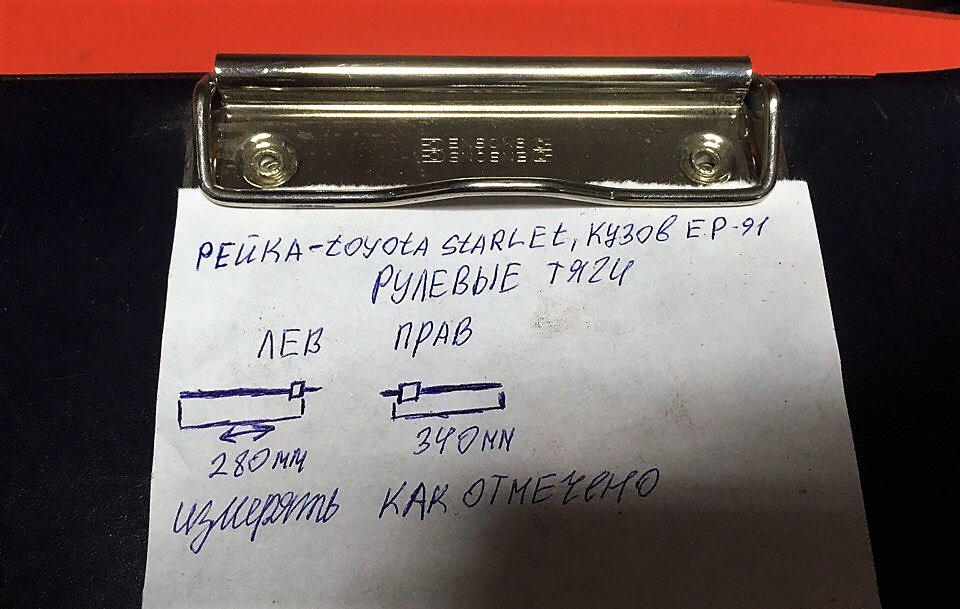 РЕЙКА-tOYOtA StARLEt, КУЗОВ E.P-91
РУЛЕВЫЕ ТЯГИ
ЛЕВ ПРАВ
280мм 340мм
измерять КАК ОТМЕЧЕНО